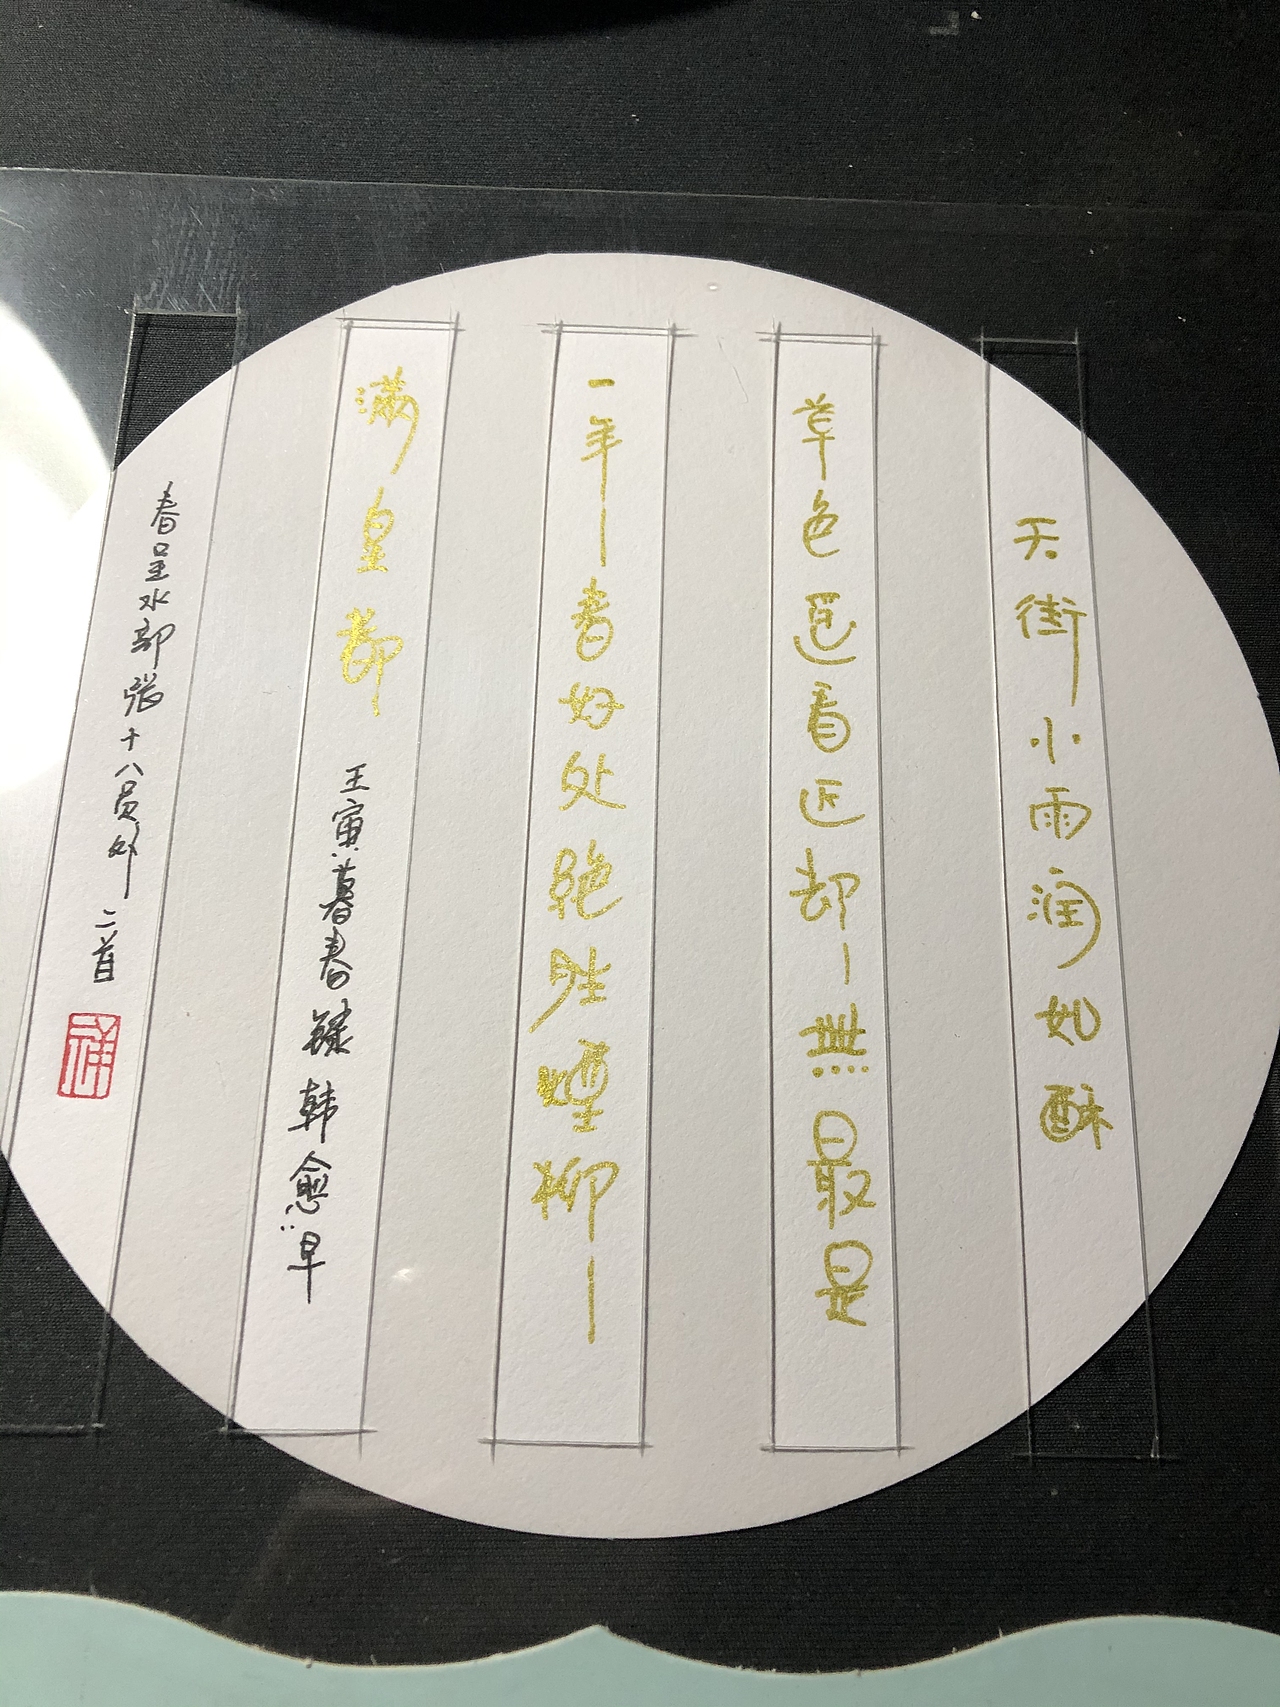 天街小雨润如酥
草色遥看近却無最是
一年春好处絕胜煙柳
满皇都 壬寅暮春録韩愈早
春呈水部張十八员外二首